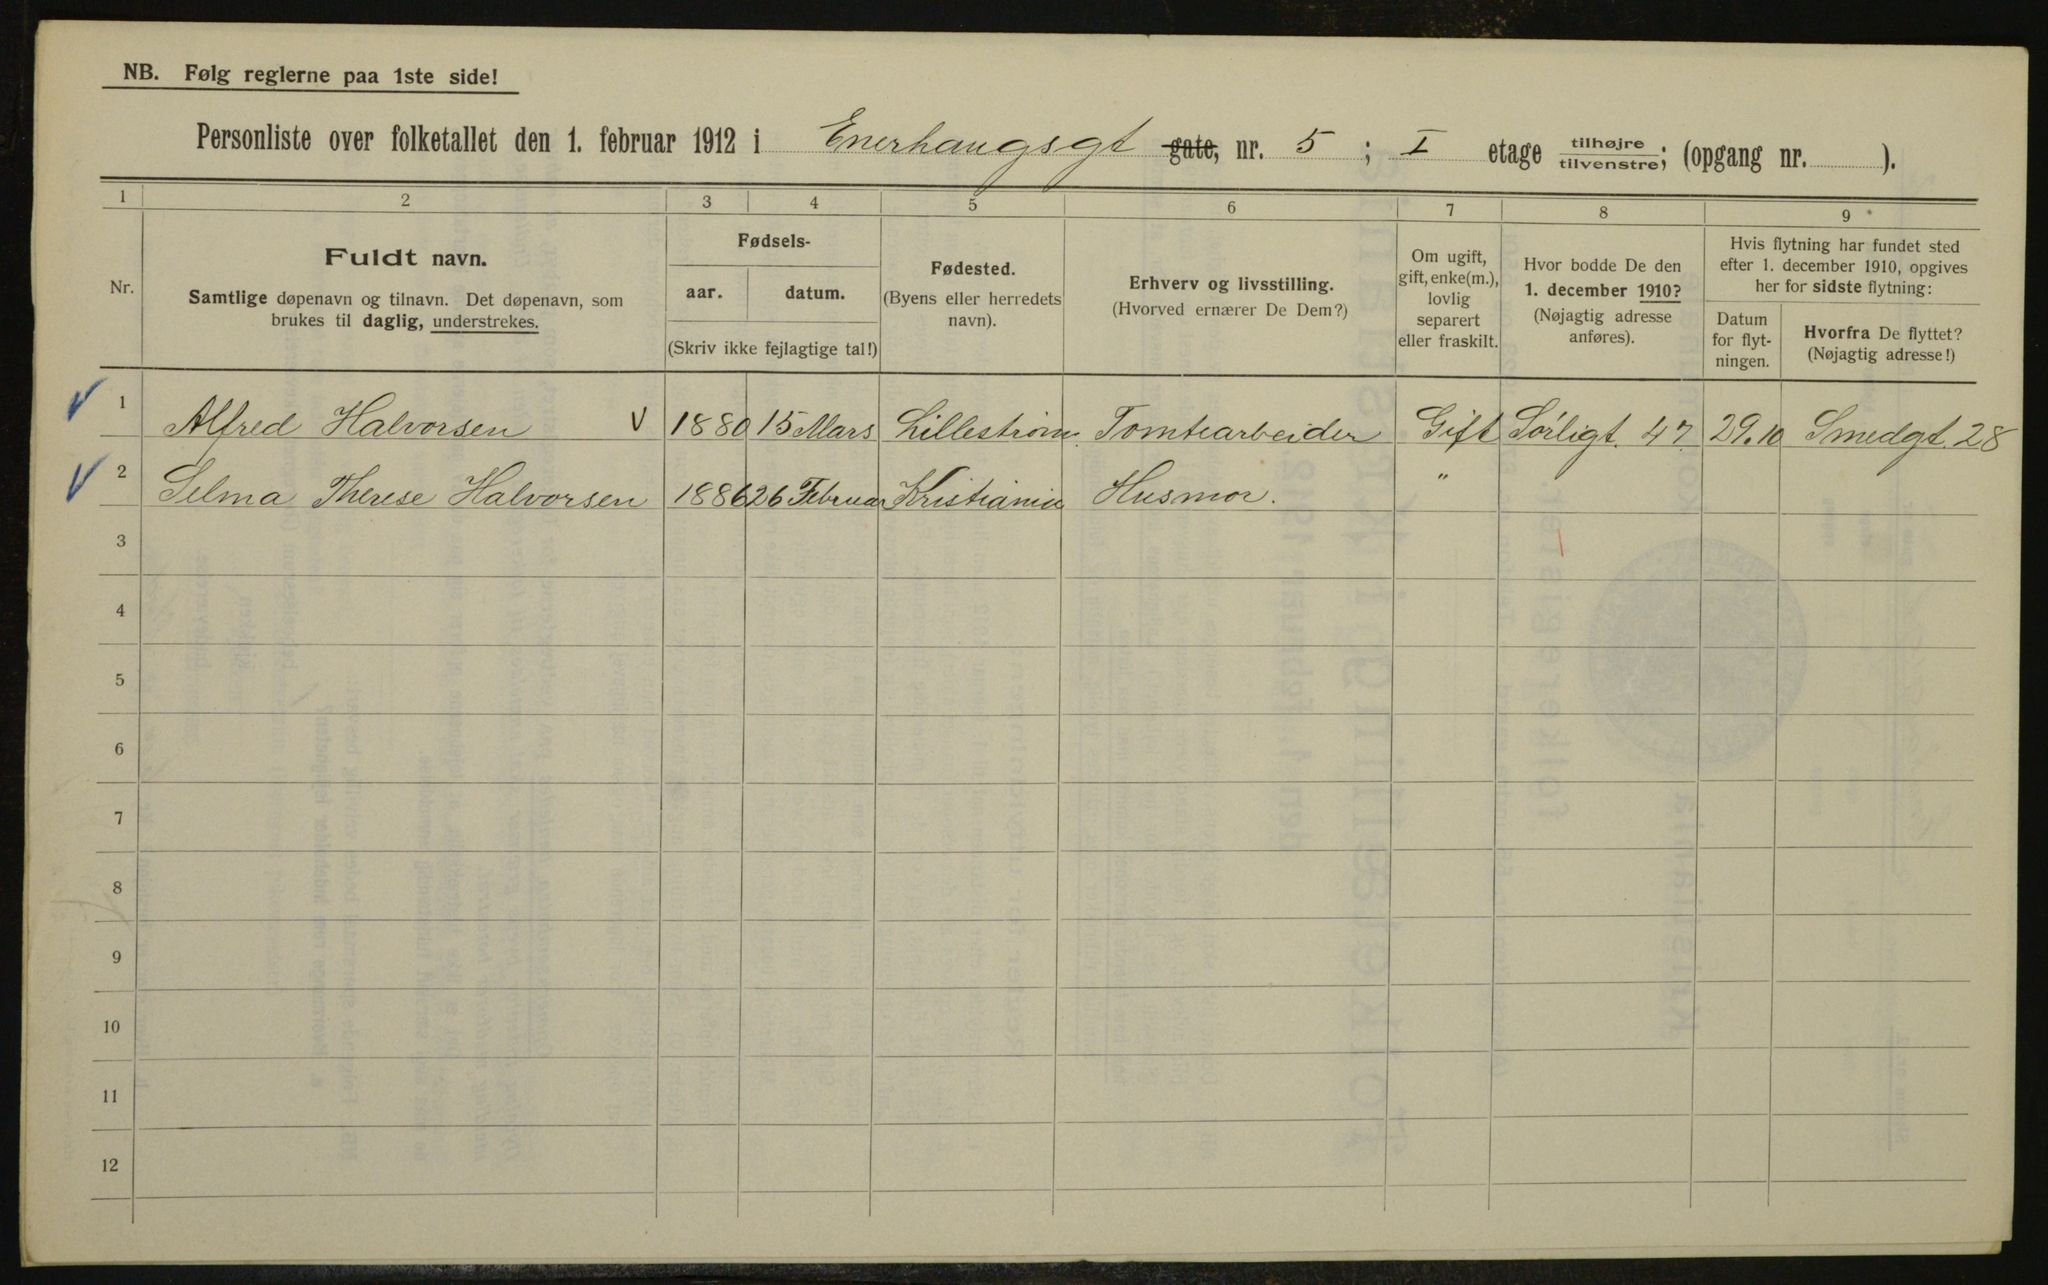 NB. Følg reglerne paa 1ste side!
Personliste over folketallet den 1. februar 1912 i Enerhaugsgt gate, nr. 5 ; I etage tilhøjre/tilvenstre; (opgang nr. ).
1 2 3 4 5 6 7 8 9
Nr.
Fuldt navn.
Samtlige døpenavn og tilnavn. Det døpenavn, som
brukes til daglig, understrekes.
Fødsels-
aar. datum.
(Skriv ikke fejlagtige tal!)
Fødested.
(Byens eller herredets
navn).
Erhverv og livsstilling.
(Hvorved ernærer De Dem?)
Om ugift,
gift, enke(m.),
lovlig
separert
eller fraskilt.
Hvor bodde De den
1. december 1910?
(Nøjagtig adresse
anføres).
Hvis flytning har fundet sted
efter 1. december 1910, opgives
her for sidste flytning:
Datum
for flyt-
ningen.
Hvorfra De flyttet?
(Nøjagtig adresse!)
1 Alfred Halvorsen V 1880 15 Mars Lillestrøm Tomtearbeider Gift Sørligt. 47. 29.10 Smedgt. 28
2 Selma Therese Halvorsen 1886 26 Februar Kristiania Husmor. "
3
4
5
6
7
8
9
10
11
12